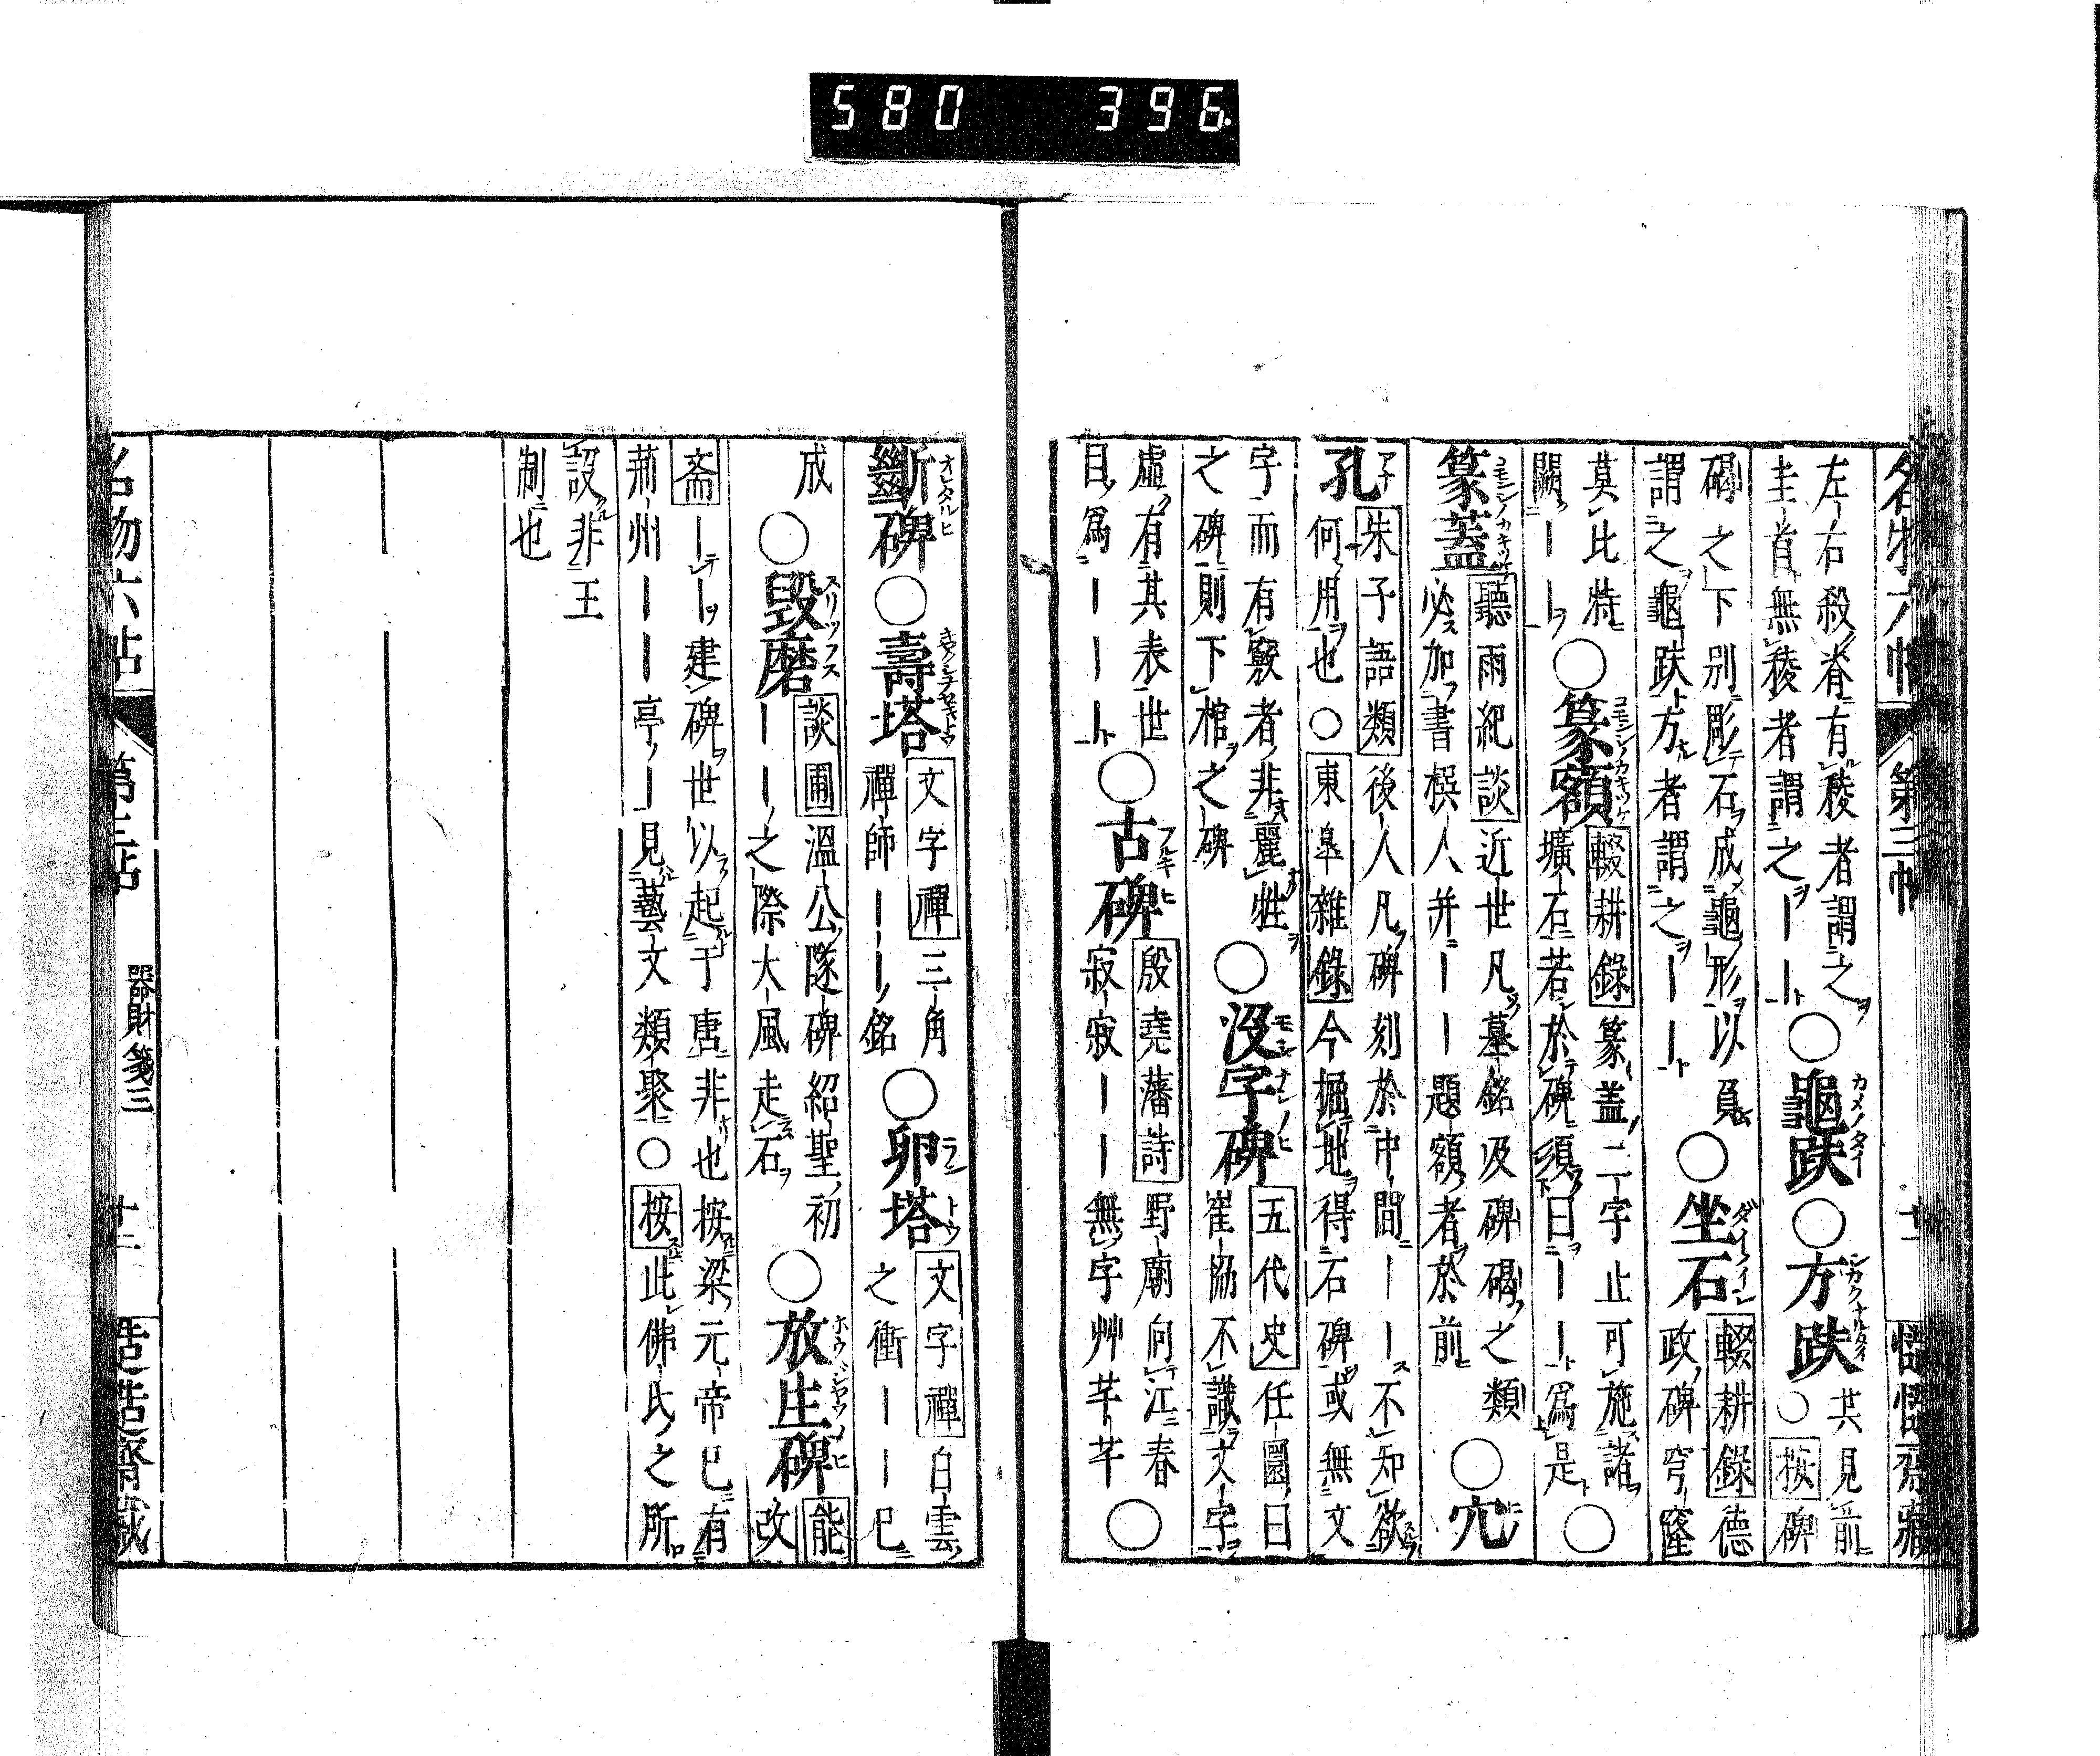 580 396
名物六帖 第三帖 十二 慥慥齋藏
左右殺脊有稜者謂之
圭首無稜者謂之——○龜趺○方趺 共見前 ○按碑
碣之下別彫石成龜形以負
謂之龜趺方者謂之——○坐石 輟耕錄 德
政碑穹窿
莫比特
闕——○篆額 輟耕錄 篆蓋二字止可施諸
壙石若於碑須曰——爲是○
篆蓋 聽雨紀談 近世凡墓銘及碑碣之類
必加書撰人并——題額者於前○穴
孔 朱子語類 後人凡碑刻於中間——不知欲
何用也○東皐雜錄 今掘地得石碑或無文
字而有竅者非麗牲
之碑則下棺之碑○沒字碑 五代史 任圜曰
崔協不識文字
虛有其表世
目爲———○古碑 殷堯藩詩 野廟向江春
寂寂——無字艸芊芊○
斷碑○壽塔 文字禪 三角
禪師——銘○卵塔 文字禪 白雲
之衝——已
成○毀磨 談圃 溫公隧碑紹聖初
——之際大風走石○放生碑 能改
齋——建碑世以起于唐非也按梁元帝已有
荊州——亭—見藝文類聚○按此佛氏之所
設非王
制也
名物六帖 第三帖 器財箋三 十二 慥慥齋藏